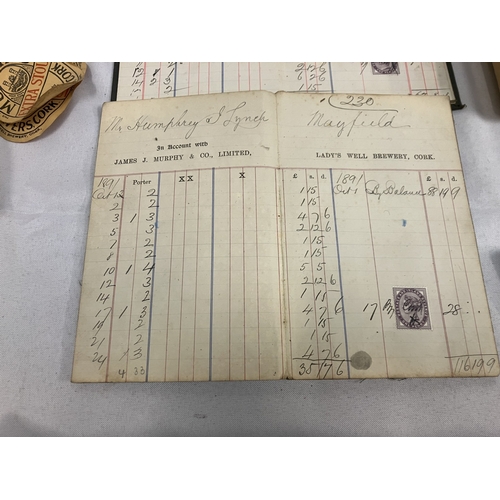 14 3 2 6
15 2 1 2 6
2 3 6 2 6
EXTRA STOUT
CORK
230
Mr Humphrey J Lynch Mayfield
In Account with
JAMES J. MURPHY & CO., LIMITED, LADY'S WELL BREWERY, CORK.
Porter XX X £ s. d. £ s. d.
1891 1891
Oct 2 1 15 Oct 1 By Balance 88 19 9
2 2 1 15
3 1 3 4 7 6
5 3 2 12 6
7 2 1 15
8 2 1 15
10 1 4 5 5
12 3 2 12 6
14 2 1 15
17 1 3 4 7 6 17 By 28 " "
19 2 1 15
21 2 1 15
24 1 3 4 7 6
4 33 35 17 6 116 19 9